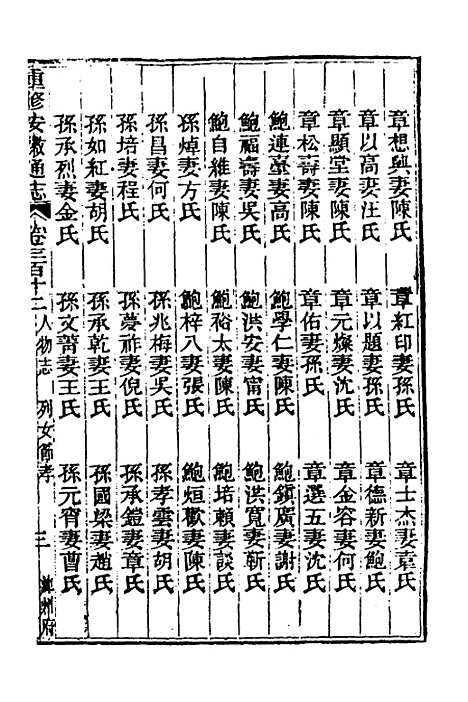 章想與妻陳氏　章紅印妻孫氏　章士杰妻章氏
章以高妻汪氏　章以題妻孫氏　章德新妻鮑氏
章顯堂妻陳氏　章元燦妻沈氏　章金容妻何氏
章松壽妻陳氏　章佑妻孫氏　章選五妻沈氏
鮑連臺妻高氏　鮑學仁妻陳氏　鮑鎮廣妻謝氏
鮑福壽妻吳氏　鮑洪安妻甯氏　鮑洪寬妻靳氏
鮑自維妻陳氏　鮑裕太妻陳氏　鮑培賴妻談氏
孫焯妻方氏　鮑梓八妻張氏　鮑烜歡妻陳氏
孫昌妻何氏　孫兆梅妻吳氏　孫孝雲妻胡氏
孫培妻程氏　孫蔆祚妻倪氏　孫承鎧妻章氏
孫如紅妻胡氏　孫承乾妻王氏　孫國梁妻趙氏
孫承烈妻金氏　孫文著妻王氏　孫元宵妻曹氏
重修安徽通志　卷三百十二　人物志　列女節孝　三　州府